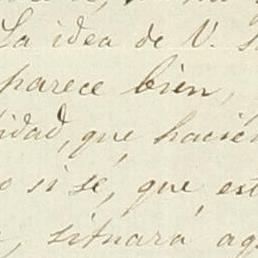 La idea de V.
parece bien,
idad, que hacién
o si sé, que est
, situará aq